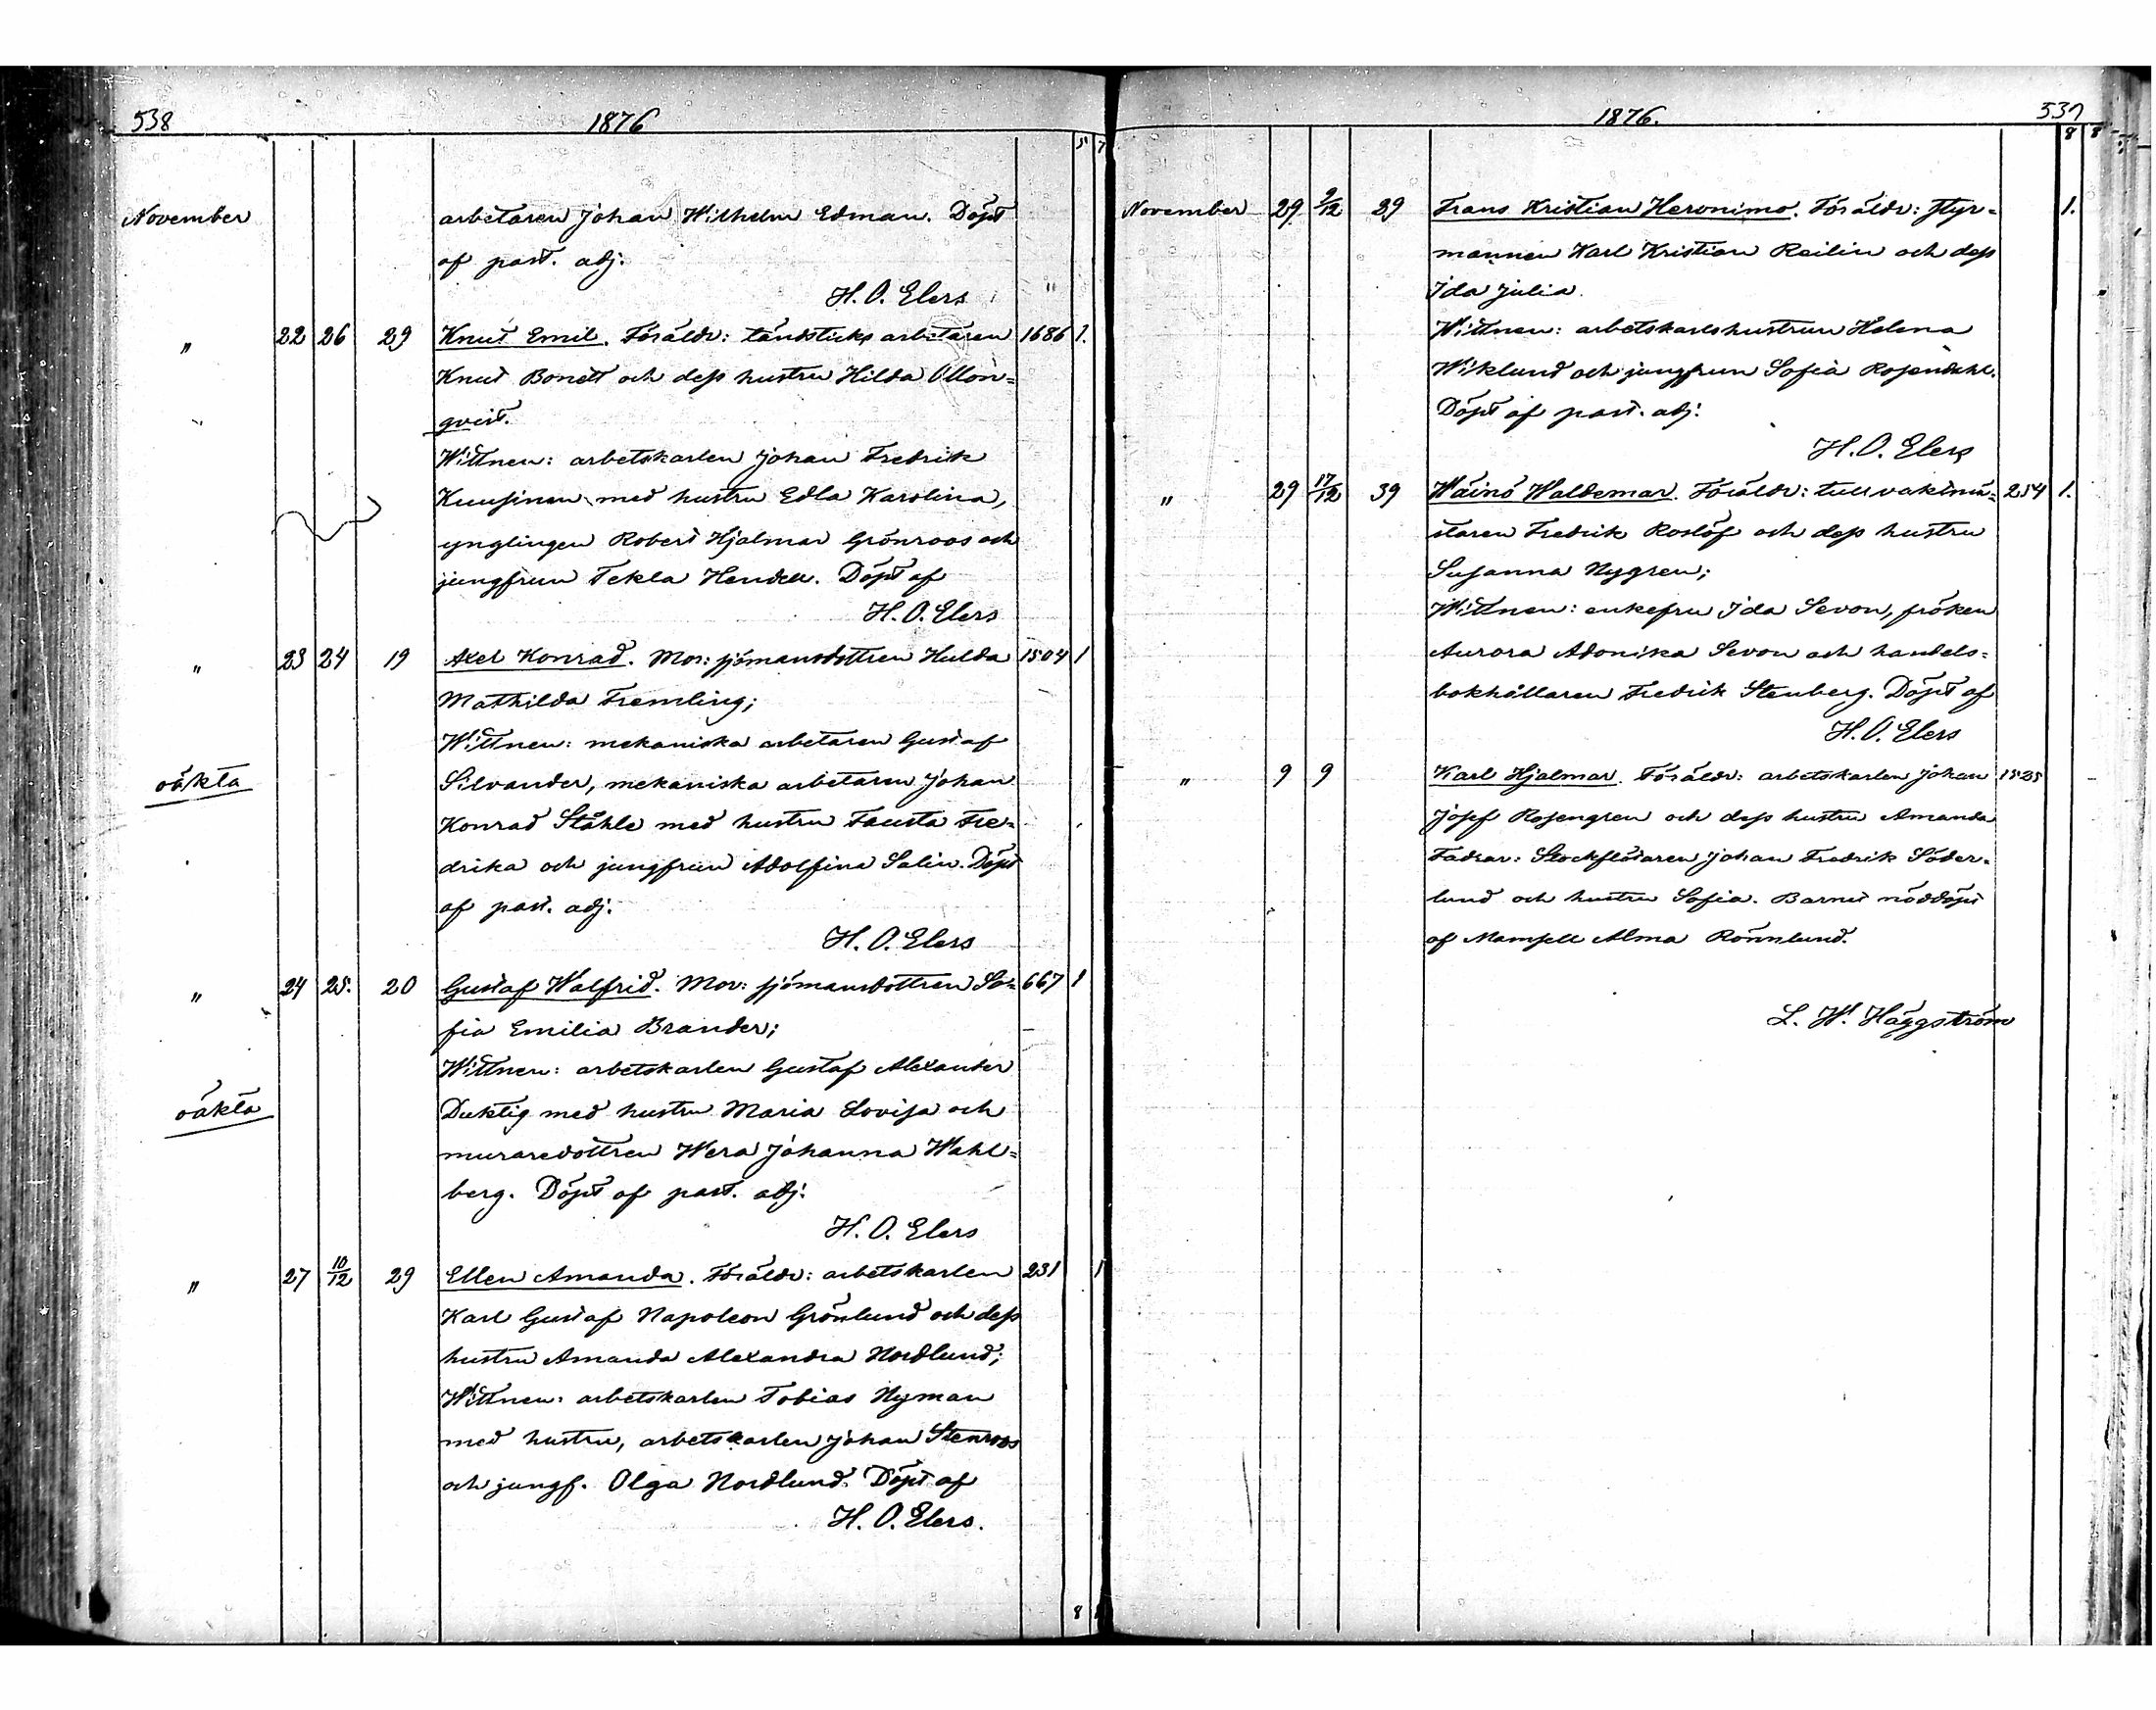 538 1876
5 7
November arbetaren Johan Wilhelm Edman. Döpt
af past. adj.
H. O. Elers "
" 22 26 29 Knut Emil. Föräldr: tändsticks arbetaren 1686 1.
Knut Bonett och dess hustru Hilda Ollon=
qvist.
Wittnen: arbetskarlen Johan Fredrik
Kuusinen med hustru Edla Karolina,
ynglingen Robert Hjalmar Grönroos och
jungfrun Tekla Hendell. Döpt af
H. O. Elers
" 23 24 19 Axel Konrad. Mor: sjömansdottren Hulda 1504 1
Mathilda Fremling;
Wittnen: mekaniska arbetaren Gustaf
oäkta Silvander, mekaniska arbetaren Johan
Konrad Ståhle med hustru Fausta Fre=
drika och jungfrun Adolfina Salin. Döpt
af past. adj.
H. O. Elers
" 24 25. 20 Gustaf Walfrid. Mor: sjömansdottren So= 667 1
fia Emilia Brander;
Wittnen: arbetskarlen Gustaf Alexander
oäkta Duktig med hustru Maria Lovisa och
muraredottren Wera Johanna Wahl=
berg. Döpt af past. adj.
H. O. Elers
" 27 10/12 29 Ellen Amanda. Föräldr: arbetskarlen 231 1
Karl Gustaf Napoleon Grönlund och dess
hustru Amanda Alexandra Nordlund;
Wittnen: arbetskarlen Tobias Nyman
med hustru, arbetskarlen Johan Stenroos
och jungf. Olga Nordlund. Döpt af
H. O. Elers.
8
1876. 537
8 8
November 29 9/12 39 Frans Kristian Heronimo. Föräldr: styr= 1.
mannen Karl Kristian Reilin och dess
Ida Julia.
Wittnen: arbetskarlshustrun Helena
Wiklund och jungfrun Sofia Rosendahl.
Döpt af past. adj.
H. O. Elers
" 29 17/12 39 Wäinö Waldemar. Föräldr: tullvaktmä= 254 1.
staren Fredrik Roslöf och dess hustru
Susanna Nygren;
Wittnen: enkefru Ida Sevon, fröken
Aurora Adonika Sevon och handels=
bokhållaren Fredrik Stenberg. Döpt af
H. O. Elers
" 9 9 Karl Hjalmar. Föräldr: arbetskarlen Johan 1525
Josef Rosengren och dess hustru Amanda
Fadrar: Stockflötaren Johan Fredrik Söder=
lund och hustru Sofia. Barnet nöddöpt
af Mamsell Alma Rönnlund.
L. W. Häggström